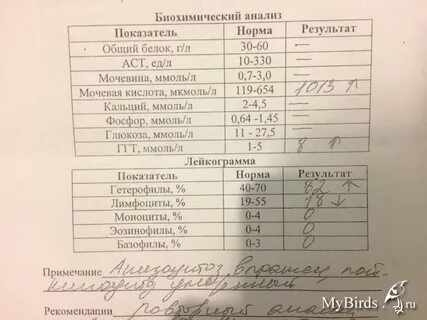 Биохимический анализ
Показатель Норма Результат
Общий белок, г/л 30-60 —
АСТ, ед/л 10-330 —
Мочевина, ммоль/л 0,7-3,0 —
Мочевая кислота, мкмоль/л 119-654 1013 ↑
Кальций, ммоль/л 2-4,5 —
Фосфор, ммоль/л 0,64 -1,45 —
Глюкоза, ммоль/л 11 - 27,5 —
ГГТ, ммоль/л 1-5 8 ↑
Лейкограмма
Показатель Норма Результат
Гетерофилы, % 40-70 82 ↑
Лимфоциты, % 19-55 18 ↓
Моноциты, % 0-4 0
Эозинофилы, % 0-4 0
Базофилы, % 0-3 0
Примечание Анизоцитоз выражен
Рекомендации повторный анализ
MyBirds.ru